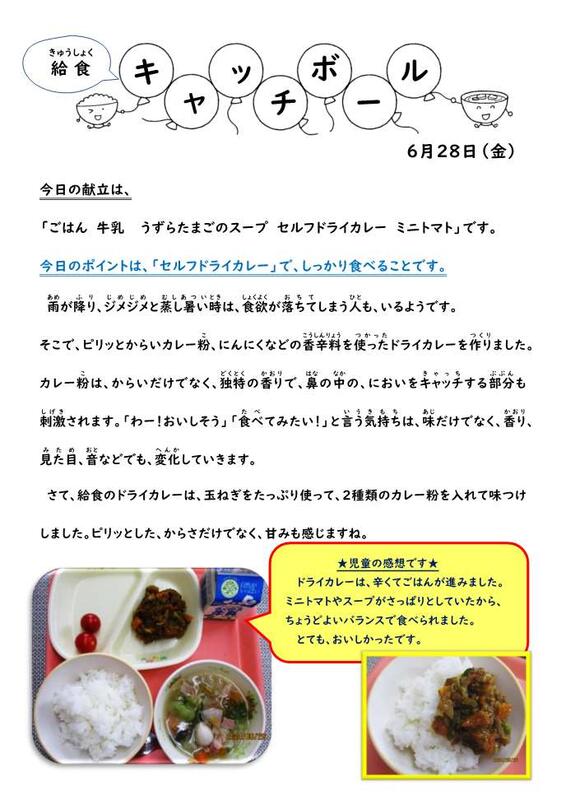 きゅうしょく
給食
キャッチボール
6月28日（金）
今日の献立は、
「ごはん　牛乳　うずらたまごのスープ　セルフドライカレー　ミニトマト」です。
今日のポイントは、「セルフドライカレー」で、しっかり食べることです。
あめ　ふり　じめじめ　むしあついとき　しょくよく　おちて　ひと
雨が降り、ジメジメと蒸し暑い時は、食欲が落ちてしまう人も、いるようです。
こ　こうしんりょう　つかった　つくり
そこで、ピリッとからいカレー粉、にんにくなどの香辛料を使ったドライカレーを作りました。
こ　どくとく　かおり　はな　なか　きゃっち　ぶぶん
カレー粉は、からいだけでなく、独特の香りで、鼻の中の、においをキャッチする部分も
しげき　たべ　いうきもち　あじ　かおり
刺激されます。「わー！おいしそう」「食べてみたい！」と言う気持ちは、味だけでなく、香り、
みため　おと　へんか
見た目、音などでも、変化していきます。
さて、給食のドライカレーは、玉ねぎをたっぷり使って、2種類のカレー粉を入れて味つけ
しました。ピリッとした、からさだけでなく、甘みも感じますね。
★児童の感想です★
ドライカレーは、辛くてごはんが進みました。
ミニトマトやスープがさっぱりとしていたから、
ちょうどよいバランスで食べられました。
とても、おいしかったです。